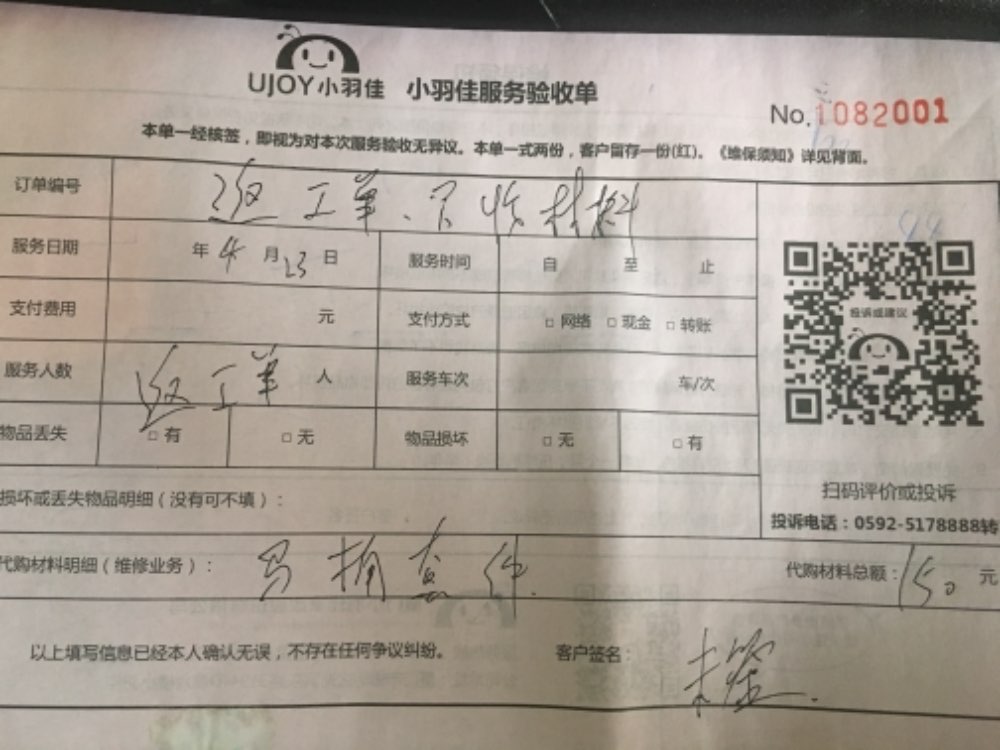 UJOY小羽佳 小羽佳服务验收单
No.1082001
本单一经核签，即视为对本次服务验收无异议。本单一式两份，客户留存一份(红)。《维保须知》详见背面。
订单编号 返工单、只收材料
服务日期 年4月23日 服务时间 自 至 止
支付费用 元 支付方式 □网络 □现金 □转账
投诉或建议
服务人数 返工单 人 服务车次 车/次
物品丢失 □有 □无 物品损坏 □无 □有
扫码评价或投诉
损坏或丢失物品明细（没有可不填）：
投诉电话：0592-5178888转
代购材料明细（维修业务）： 马桶盖 件 代购材料总额：150元
以上填写信息已经本人确认无误，不存在任何争议纠纷。 客户签名：